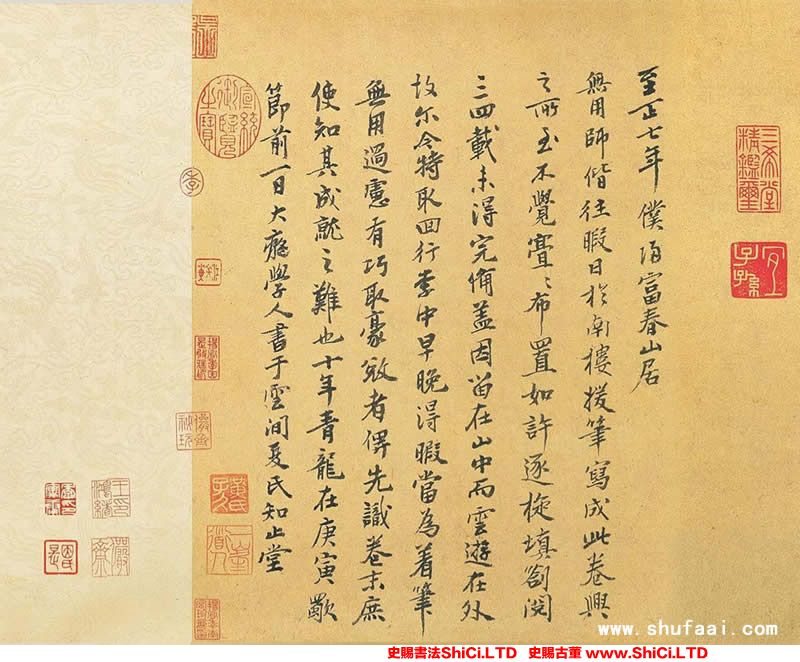 至正七年僕歸富春山居
無用師偕往暇日於南樓援筆寫成此卷興
之所至不覺亹〻布置如許逐旋填劄閱
三四載未得完備盖因留在山中而雲遊在外
故尔今特取回行李中早晚得暇當為着筆
無用過慮有巧取豪敚者俾先識卷末庶
使知其成就之難也十年青龍在庚寅歜
節前一日大癡學人書于雲間夏氏知止堂
三希堂精鑑璽
宜子孫
宣統御覽之寶
季
黃氏子久
一峯道人
王鴻緒印
www.shufaai.com
史賜書法ShiCi.LTD 史賜古董 www.ShiCi.LTD